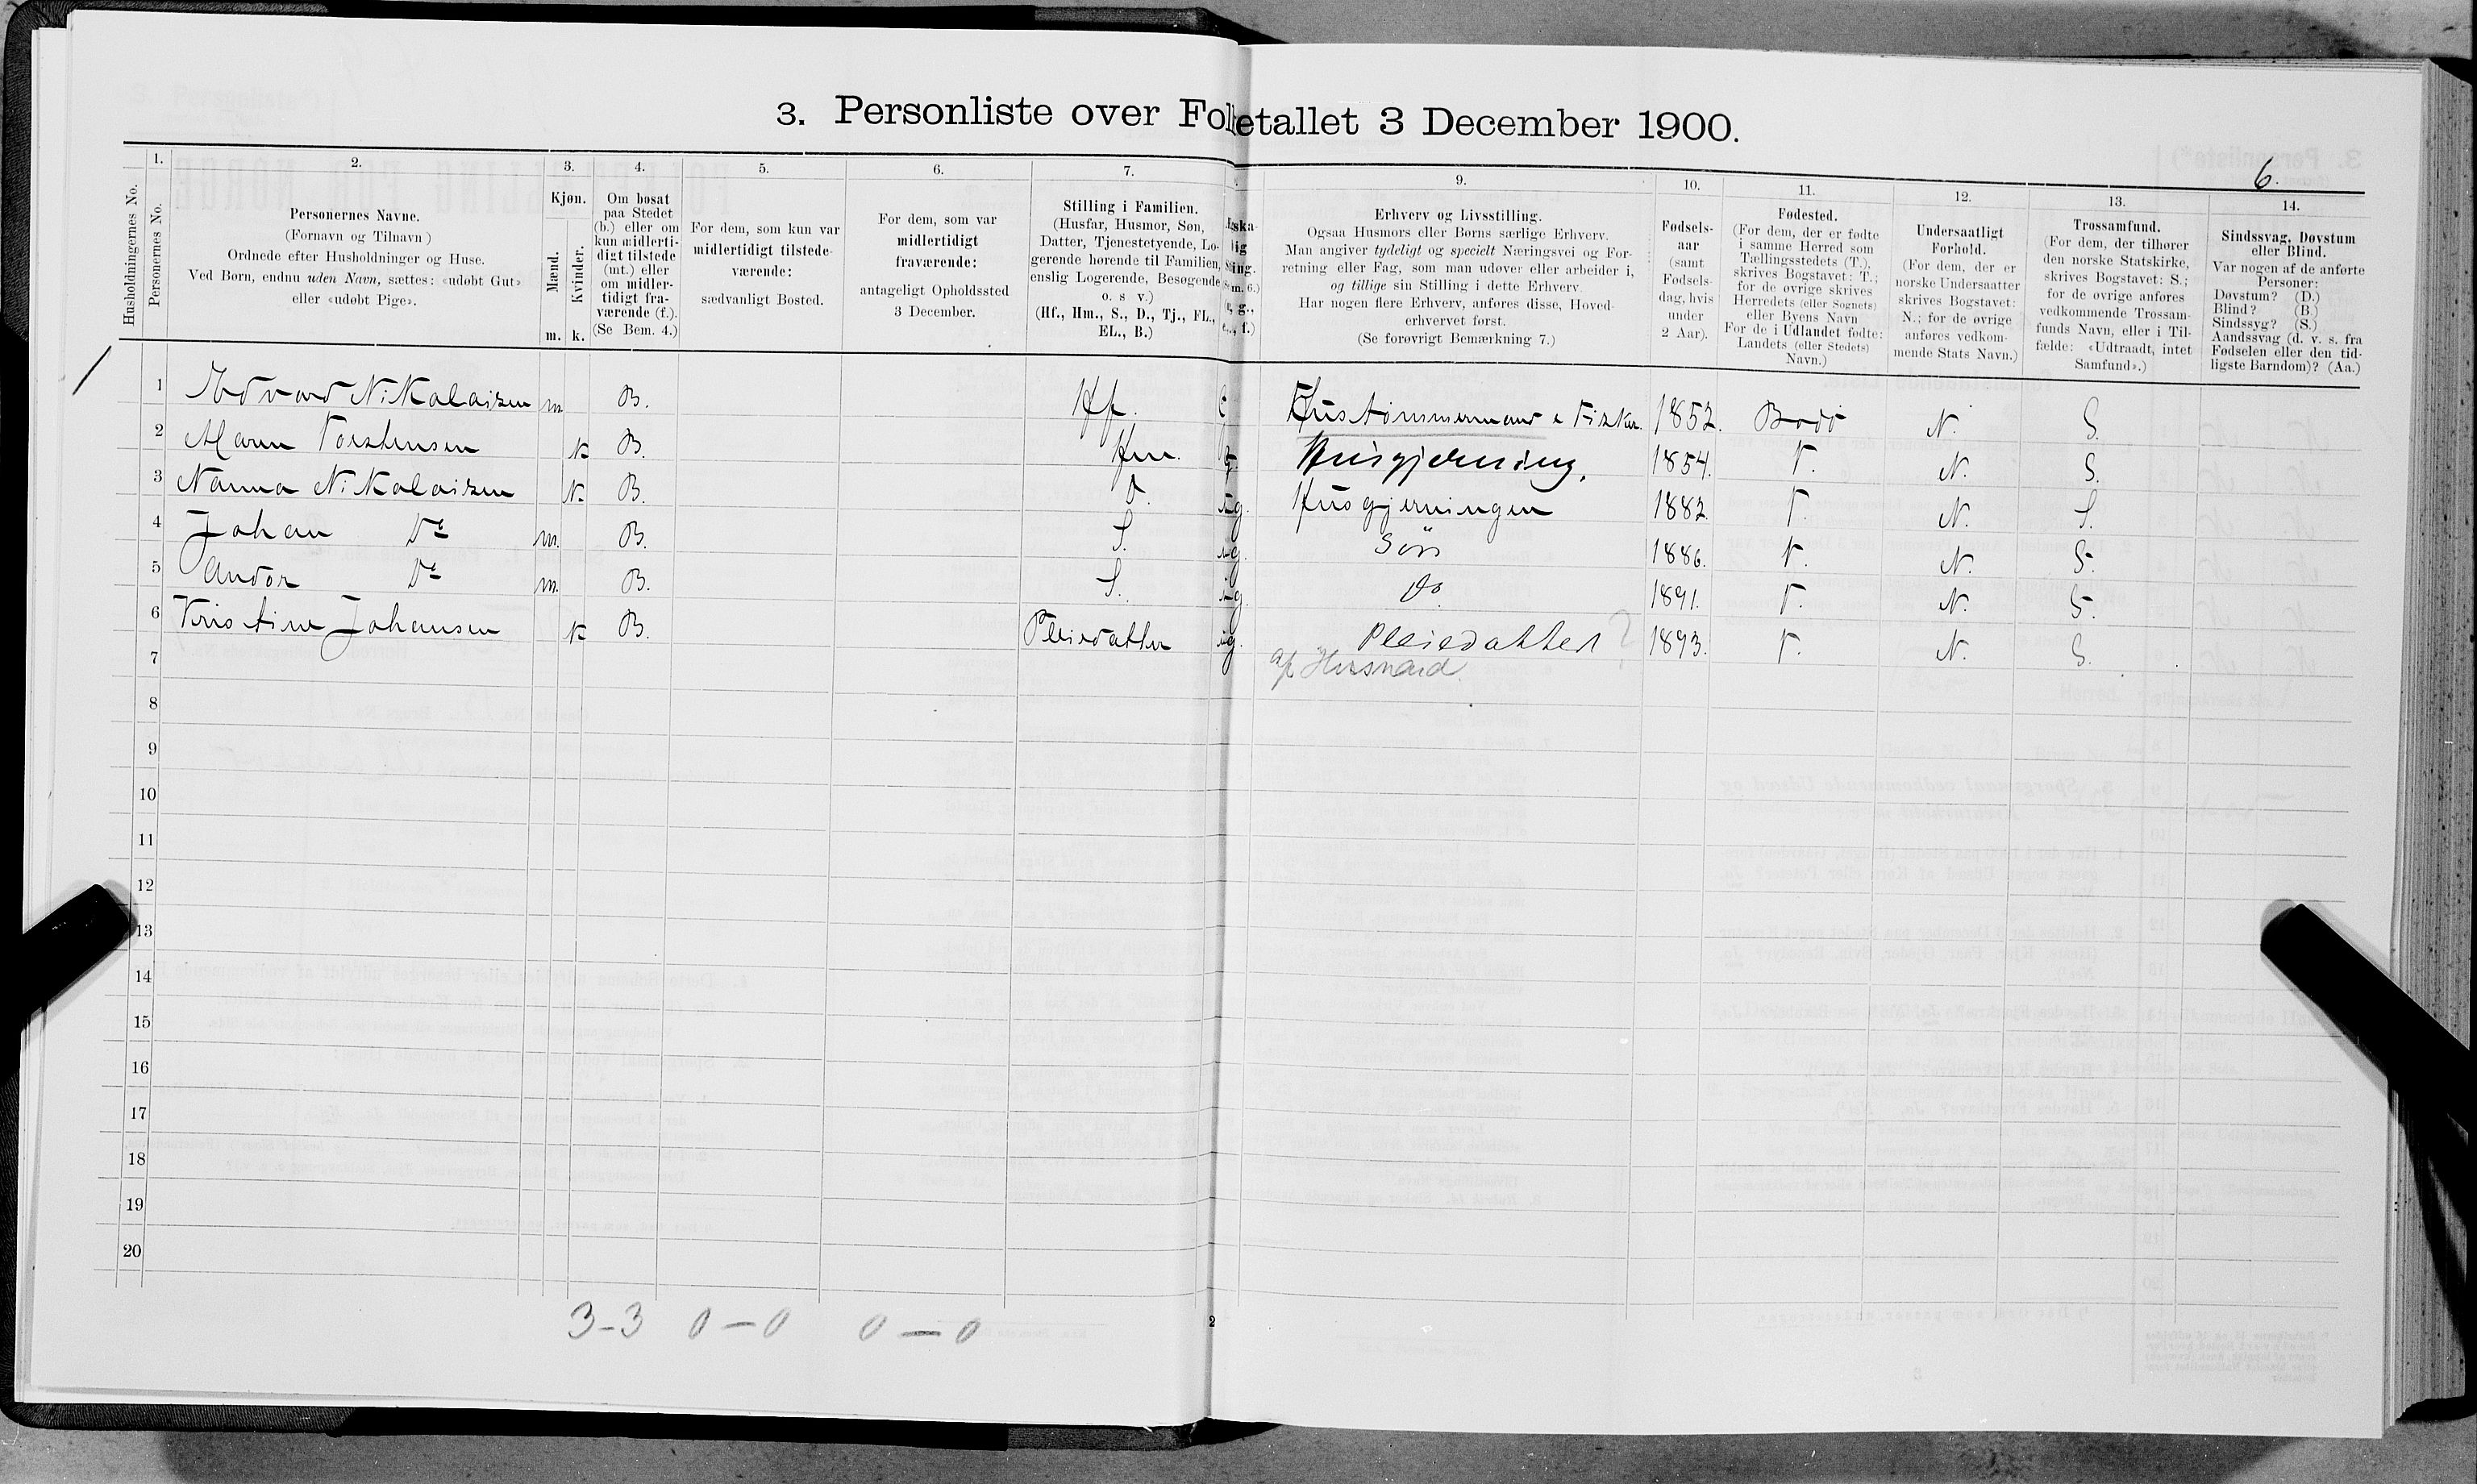 3. Personliste over Folketallet 3 December 1900.
6.
Husholdningernes No.
1.
Personernes No.
2.
Personernes Navne.
(Fornavn og Tilnavn )
Ordnede efter Husholdninger og Huse.
Ved Børn, endnu uden Navn, sættes: «udøbt Gut»
eller «udøbt Pige».
3.
Kjøn.
Mænd.
Kvinder.
m. k.
4.
Om bosat
paa Stedet
(b.) eller om
kun midlerti-
digt tilstede
(mt.) eller
om midler-
tidigt fra-
værende (f.).
(Se Bem. 4.)
5.
For dem, som kun var
midlertidigt tilstede-
værende:
sædvanligt Bosted.
6.
For dem, som var
midlertidigt
fraværende:
antageligt Opholdssted
3 December.
7.
Stilling i Familien.
(Husfar, Husmor, Søn,
Datter, Tjenestetyende, Lo-
gerende hørende til Familien,
enslig Logerende, Besøgende
o. s v.)
(Hf., Hm., S., D., Tj., FL.,
EL., B.)
9.
Erhverv og Livsstilling.
Ogsaa Husmors eller Børns særlige Erhverv.
Man angiver tydeligt og specielt Næringsvei og For-
retning eller Fag, som man udøver eller arbeider i,
og tillige sin Stilling i dette Erhverv.
Har nogen flere Erhverv, anføres disse, Hoved-
erhvervet først.
(Se forøvrigt Bemærkning 7.)
10.
Fødsels-
aar
(samt
Fødsels-
dag, hvis
under
2 Aar).
11.
Fødested.
(For dem, der er fødte
i samme Herred som
Tællingsstedets (T.),
skrives Bogstavet: T.;
for de øvrige skrives
Herredets (eller Sognets)
eller Byens Navn
For de i Udlandet fødte:
Landets (eller Stedets)
Navn.)
12.
Undersaatligt
Forhold.
(For dem, der er
norske Undersaatter
skrives Bogstavet:
N.; for de øvrige
anføres vedkom-
mende Stats Navn.)
13.
Trossamfund.
(For dem, der tilhører
den norske Statskirke,
skrives Bogstavet: S.;
for de øvrige anføres
vedkommende Trossam-
funds Navn, eller i Til-
fælde: «Udtraadt, intet
Samfund».)
14.
Sindssvag, Døvstum
eller Blind.
Var nogen af de anførte
Personer:
Døvstum? (D.)
Blind? (B.)
Sindssyg? (S.)
Aandssvag (d. v. s. fra
Fødselen eller den tid-
ligste Barndom)? (Aa.)
1 Edvard Nikolaisen m B. Hf. Hustømmermand & Fisker. 1852. Bodø N. S.
2 Maren Torstensen k B. Hm. g. Husgjerning, 1854. T. N. S.
3 Nanna Nikolaisen k B. D. ug. Husgjerningen 1882. T. N. S.
4 Johan Do m. B. S. ug. Søn 1886. T. N. S.
5 Andor Do m. B. S. ug. Do 1891. T. N. S.
6 Kristine Johansen k B. Pleiedatter ug. Pleiedatter ? 1893. T. N. S.
7 af Husmand.
8
9
10
11
12
13
14
15
16
17
18
19
20
3-3 0-0 0-0
2